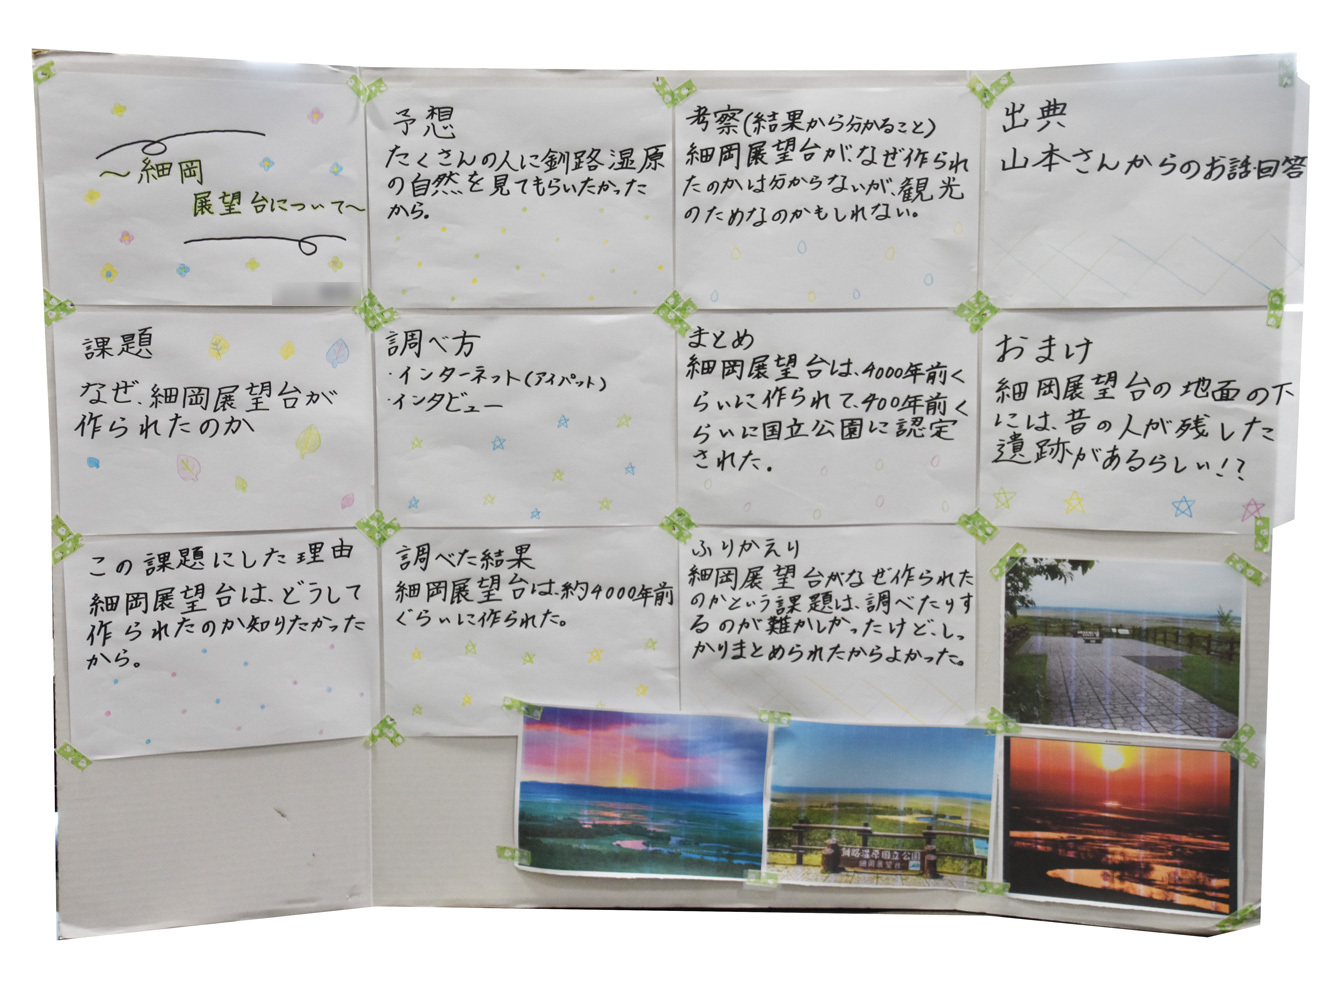 ～細岡
展望台について～
課題
なぜ、細岡展望台が
作られたのか
この課題にした理由
細岡展望台は、どうして
作られたのか知りたかった
から。
予想
たくさんの人に釧路湿原
の自然を見てもらいたかった
から。
調べ方
・インターネット(アイパット)
・インタビュー
調べた結果
細岡展望台は、約4000年前
ぐらいに作られた。
考察(結果から分かること)
細岡展望台が、なぜ作られ
たのかは分からないが、観光
のためなのかもしれない。
まとめ
細岡展望台は、4000年前く
らいに作られて、400年前く
らいに国立公園に認定
された。
ふりかえり
細岡展望台がなぜ作られた
のかという課題は、調べたりす
るのが難かしかったけど、しっ
かりまとめられたからよかった。
出典
山本さんからのお話・回答
おまけ
細岡展望台の地面の下
には、昔の人が残した
遺跡があるらしい!?
釧路湿原国立公園
細岡展望台